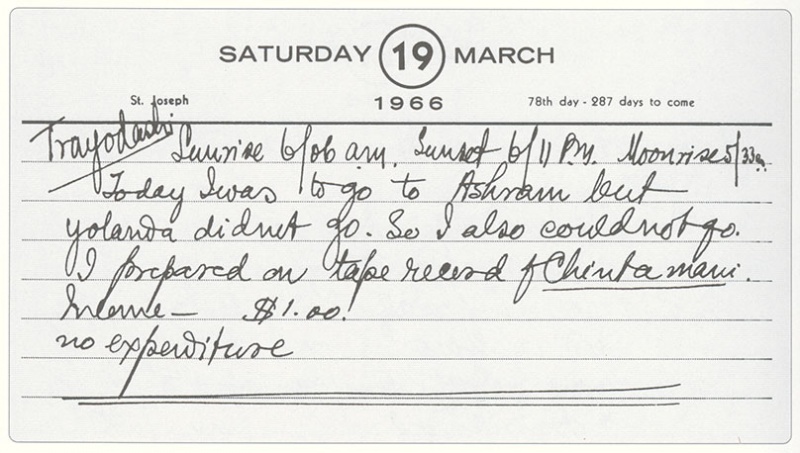 SATURDAY 19 MARCH
St. Joseph 1966 78th day - 287 days to come
Trayodashi Sunrise 6/06 a.m. Sunset 6/11 P.M. Moonrise 5/33 a.m.
Today I was to go to Ashram but
yolanda did not go. So I also could not go.
I prepared on tape record of Chintamani.
Income — $1.00.
no expenditure